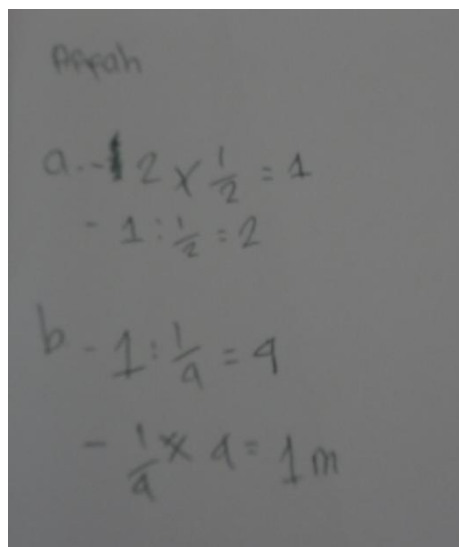 Affah
a. - 2 x 1/2 = 1
- 1 : 1/2 = 2
b - 1 : 1/4 = 4
- 1/4 x 4 = 1 m